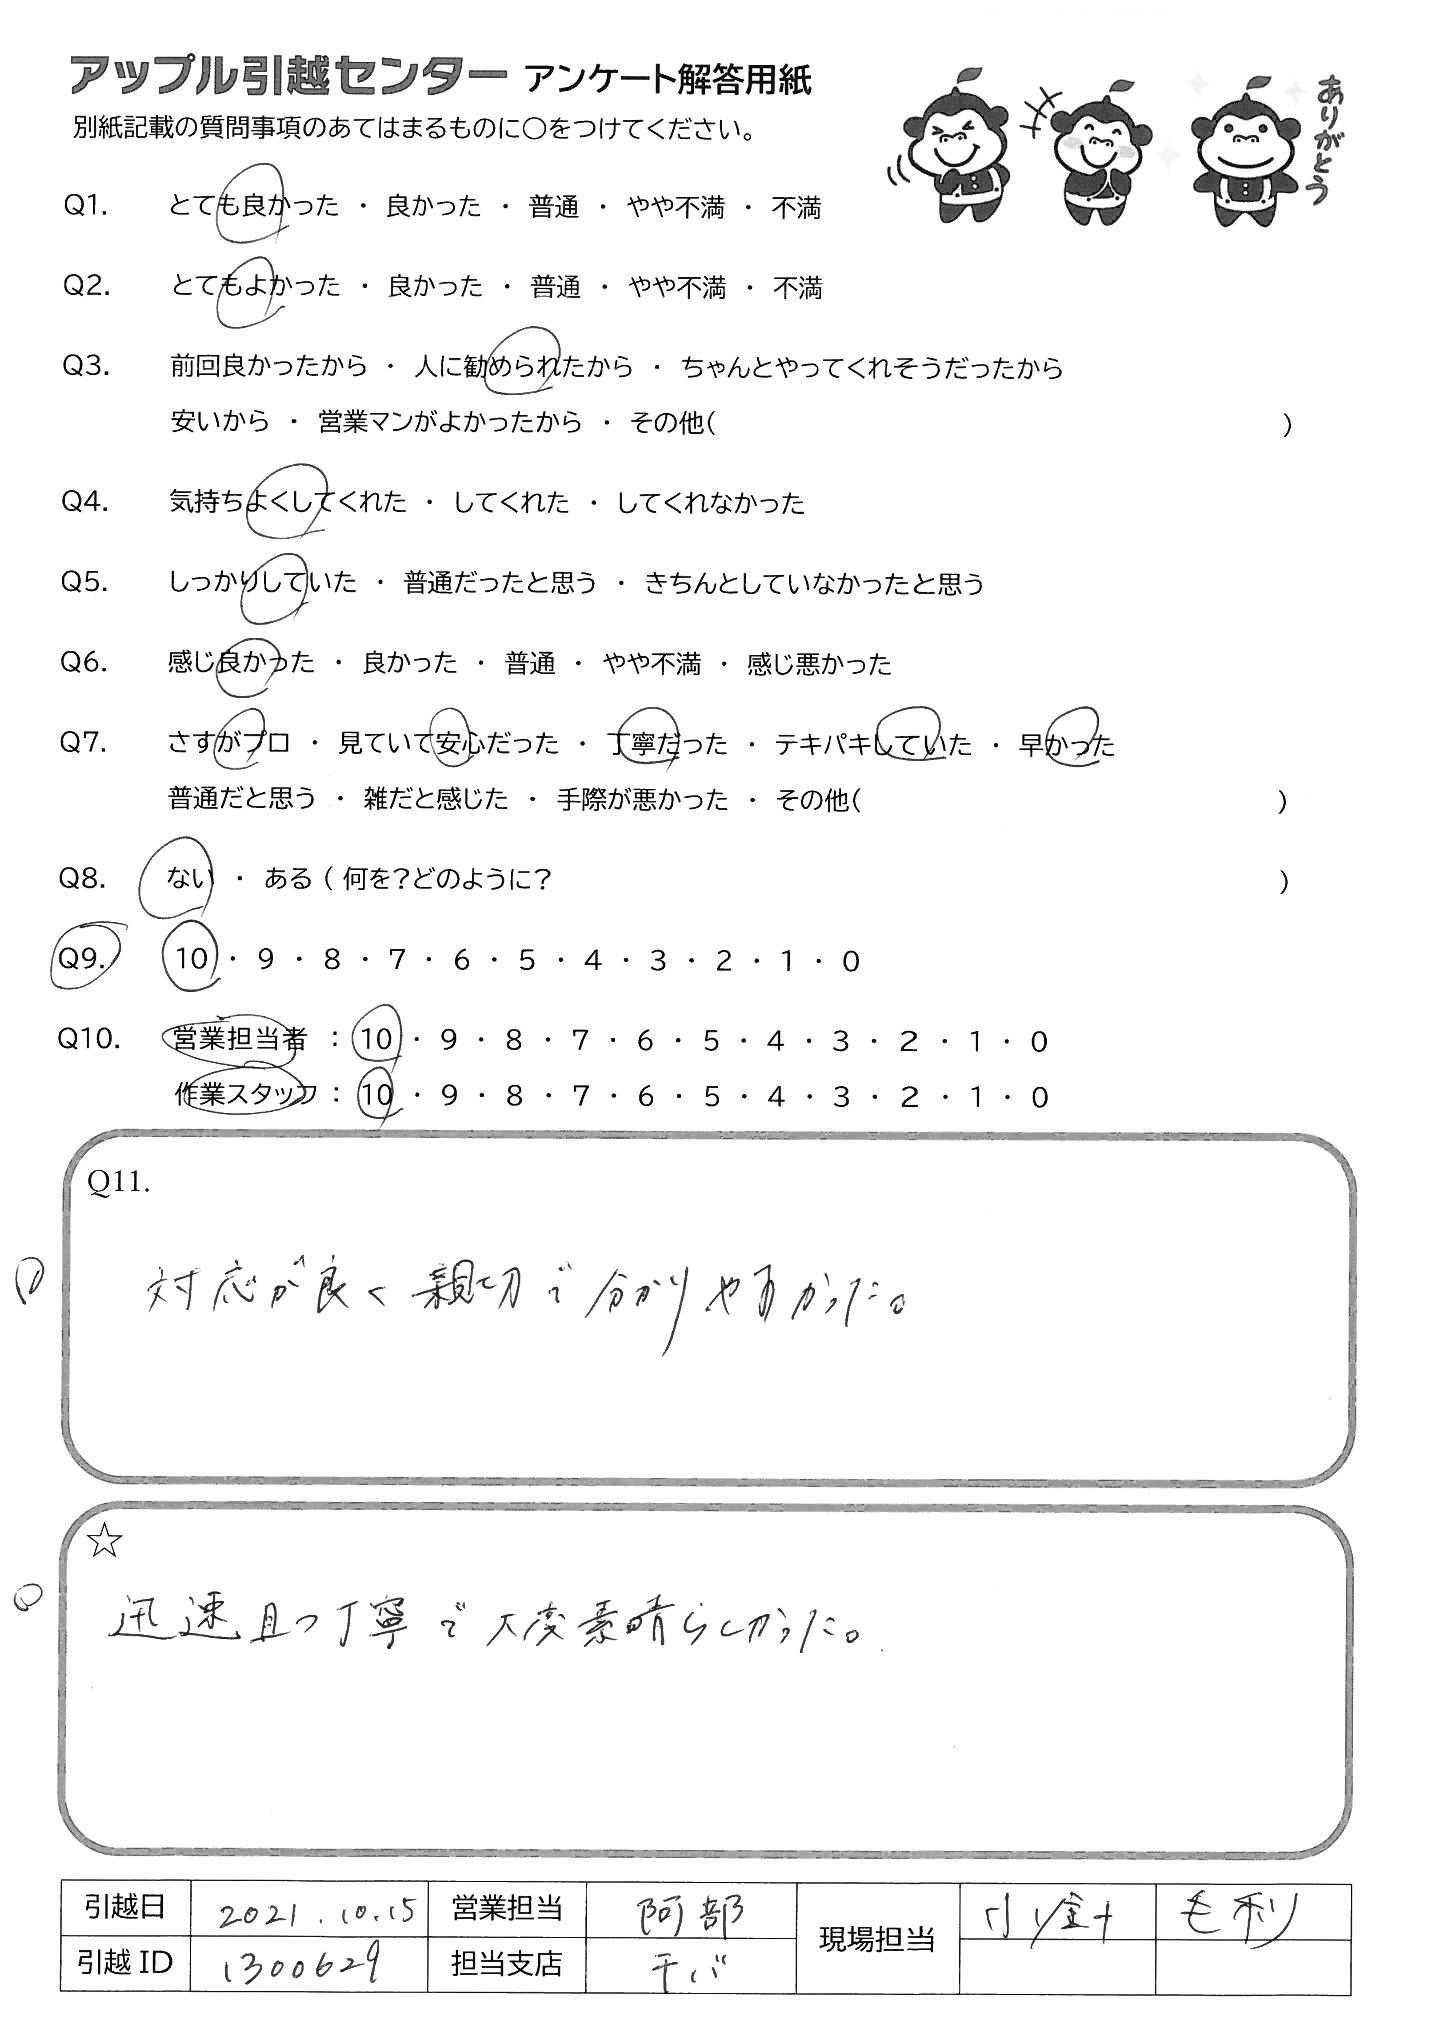 アップル引越センター アンケート解答用紙
別紙記載の質問事項のあてはまるものに○をつけてください。
ありがとう
Q1. とても良かった ・ 良かった ・ 普通 ・ やや不満 ・ 不満
Q2. とてもよかった ・ 良かった ・ 普通 ・ やや不満 ・ 不満
Q3. 前回良かったから ・ 人に勧められたから ・ ちゃんとやってくれそうだったから
安いから ・ 営業マンがよかったから ・ その他( )
Q4. 気持ちよくしてくれた ・ してくれた ・ してくれなかった
Q5. しっかりしていた ・ 普通だったと思う ・ きちんとしていなかったと思う
Q6. 感じ良かった ・ 良かった ・ 普通 ・ やや不満 ・ 感じ悪かった
Q7. さすがプロ ・ 見ていて安心だった ・ 丁寧だった ・ テキパキしていた ・ 早かった
普通だと思う ・ 雑だと感じた ・ 手際が悪かった ・ その他( )
Q8. ない ・ ある ( 何を?どのように? )
Q9. 10 ・ 9 ・ 8 ・ 7 ・ 6 ・ 5 ・ 4 ・ 3 ・ 2 ・ 1 ・ 0
Q10. 営業担当者 : 10 ・ 9 ・ 8 ・ 7 ・ 6 ・ 5 ・ 4 ・ 3 ・ 2 ・ 1 ・ 0
作業スタッフ : 10 ・ 9 ・ 8 ・ 7 ・ 6 ・ 5 ・ 4 ・ 3 ・ 2 ・ 1 ・ 0
Q11.
対応が良く親切で分かりやすかった。
☆
迅速且つ丁寧で大変素晴らしかった。
引越日 2021.10.15 営業担当 阿部 現場担当 毛利
引越ID 1300629 担当支店 千バ